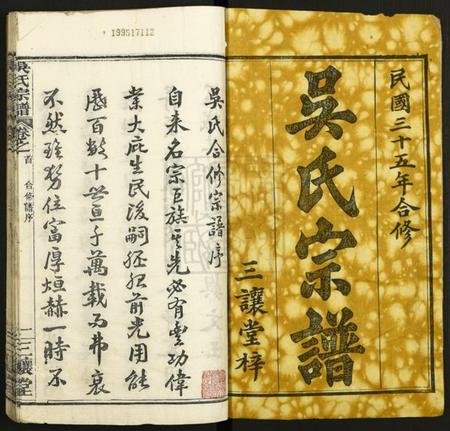 民國三十五年合修
吳氏宗譜
三讓堂梓
199517112
吳氏合修宗譜序
自来名宗巨族其先必有豐功偉
業大庇生民後嗣經承前光用能
歷百數十世亘千萬載而弗衰
不然雖勢位富厚烜赫一時不
吳氏宗譜
卷之首 合修譜序
一 三讓堂